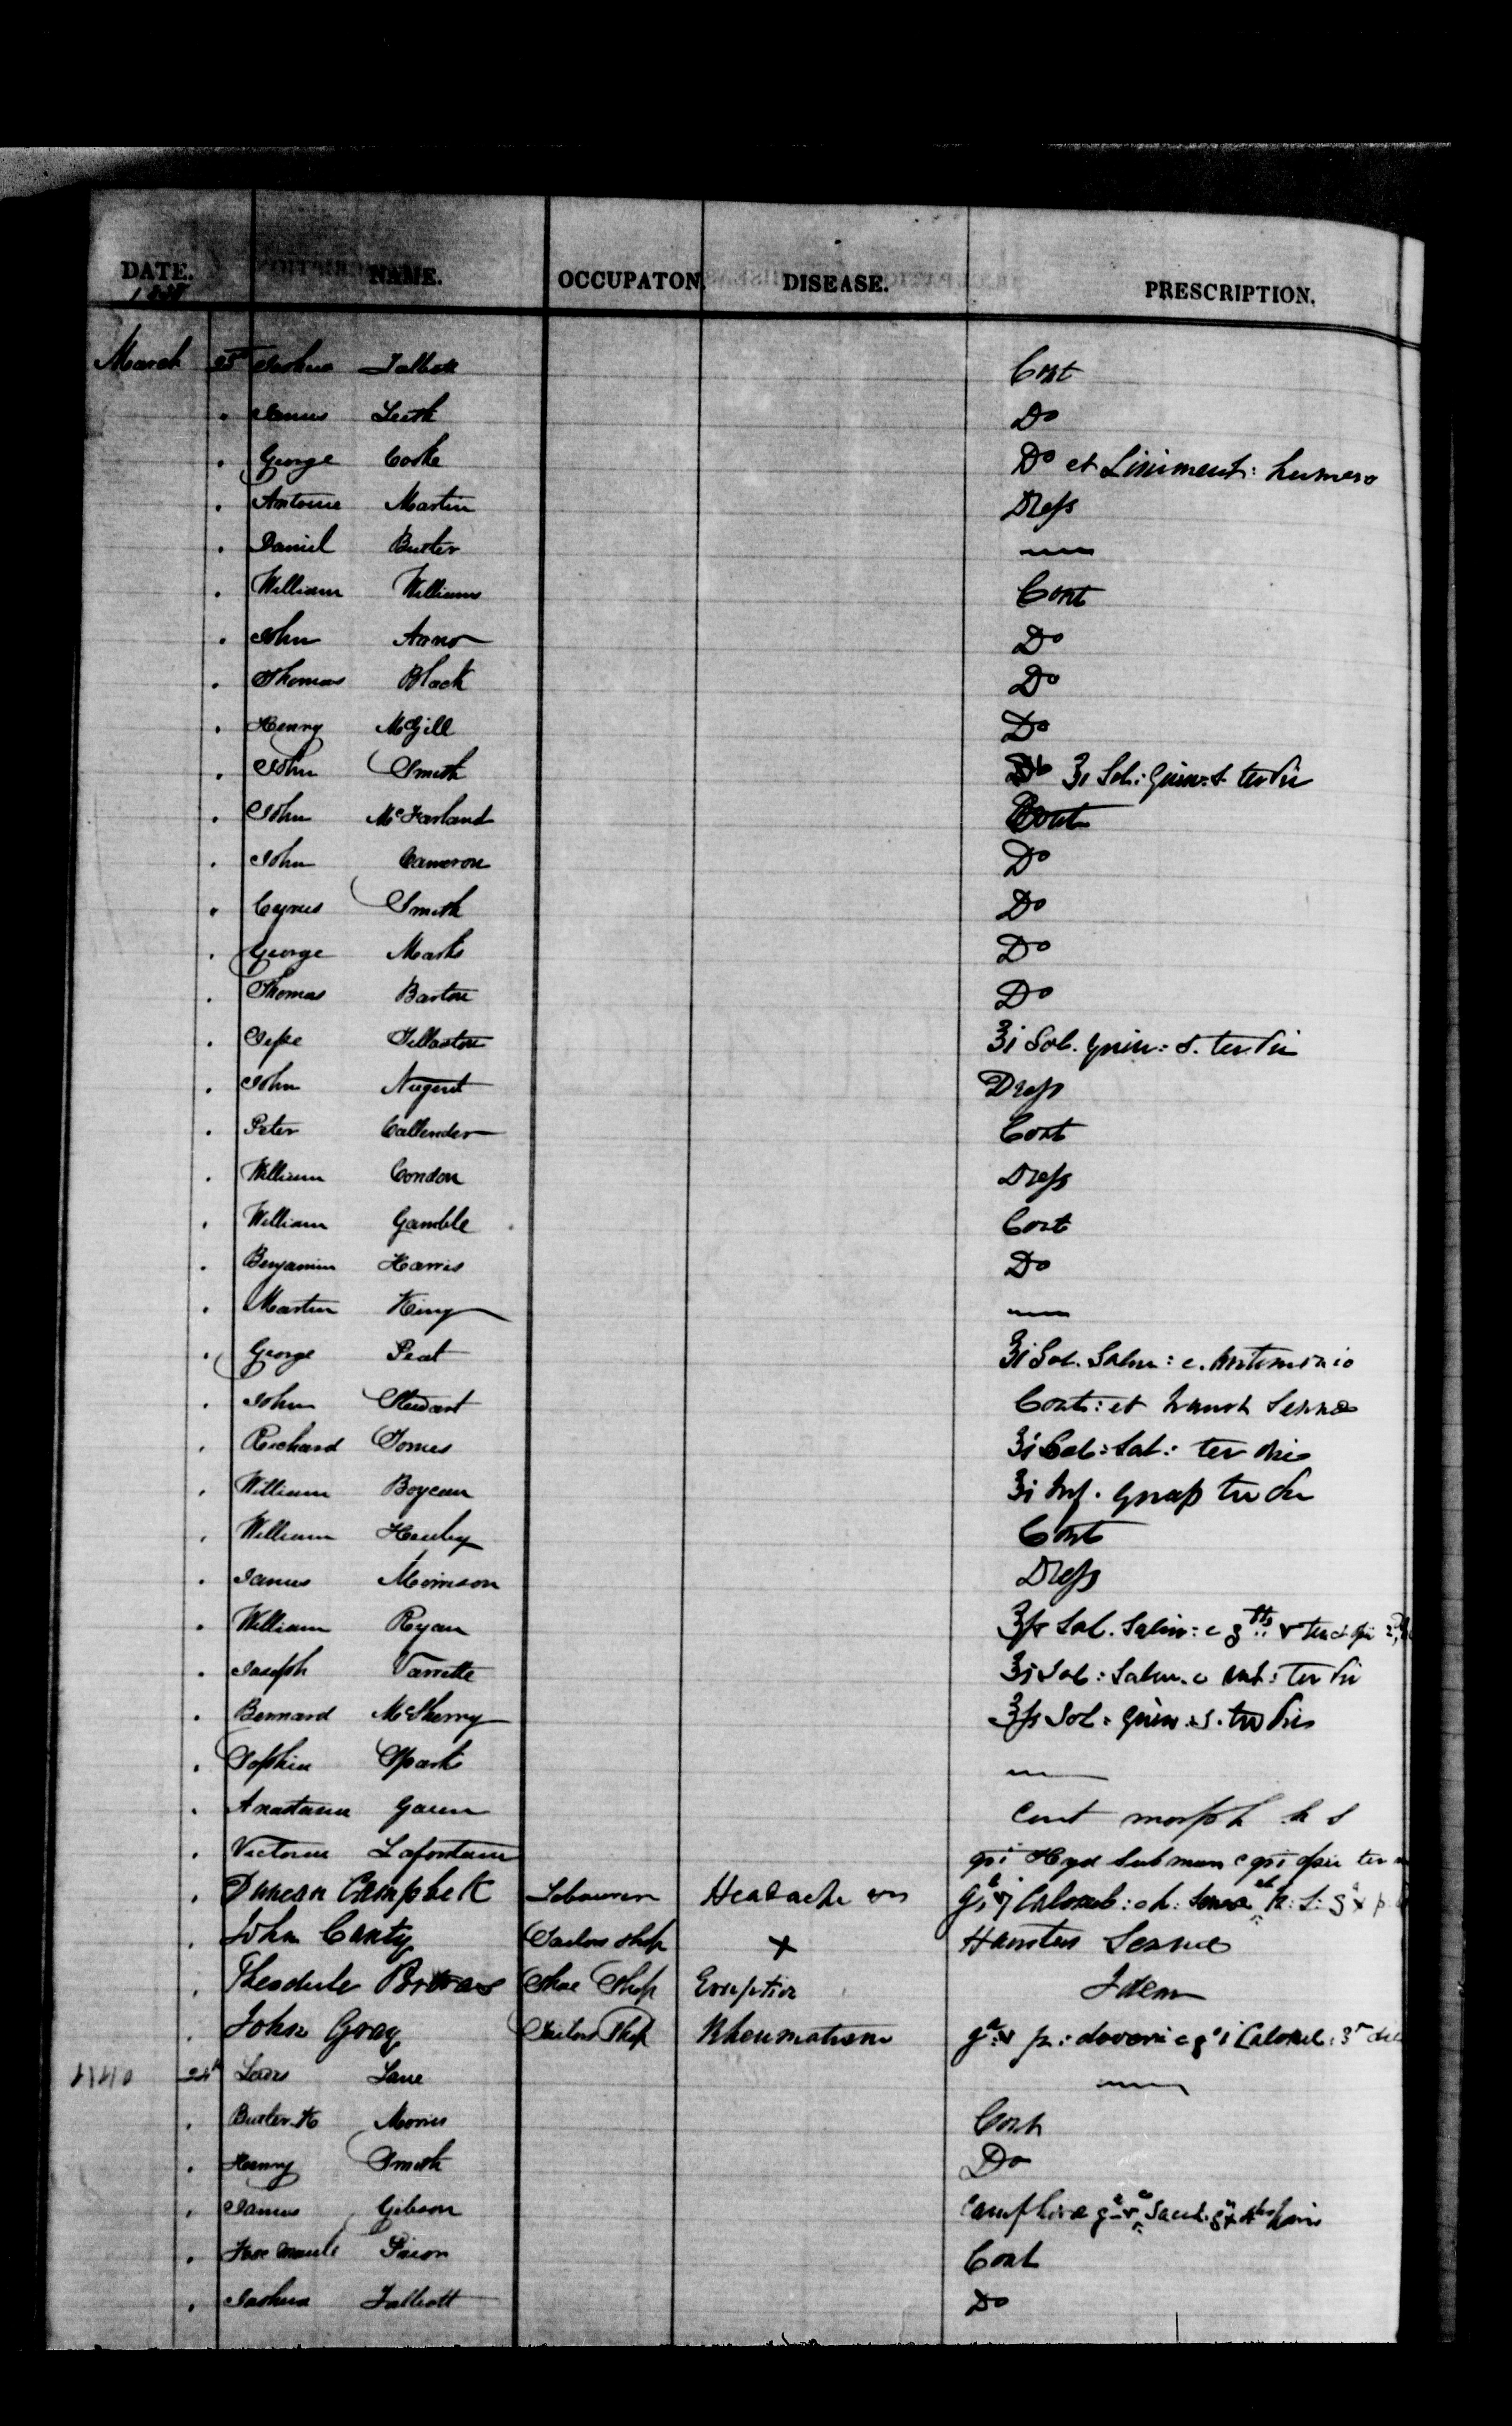 DATE. NAME. OCCUPATON. DISEASE. PRESCRIPTION.
March Joshua Talbot Cont
" James Leith Do
" George Cooke Do et Liniment: humero
" Antoine Martin Dress
" Daniel Buster —
" William Williams Cont
" John Do
" Thomas Black Do
" Henry McGill Do
" John Smith ʒi Sol: Quin: S. ter die
" John McFarland Cont
" John Cameron Do
" Cyrus Smith Do
" George Marks Do
" Thomas Barton Do
" Jesse Tillaston ʒi Sol. Quin: S. ter die
" John Nugent Dress
" Peter Callender Cont
" William Condon Dress
" William Gamble Cont
" Benjamin Harris Do
" Martin King —
" George Peat ʒi Sol. Salin: c. Antimonio
" John Stewart Cont: et haust Sennae
" Richard Jones ʒi Sol: Sal: ter die
" William Boyean ʒi Inf. Quass ter die
" William Henley Cont
" James Morrison Dress
" William Ryan ʒss Sol. Salin: c
" Joseph Varrette ʒi Sol: Salin. c Ant: ter die
" Bernard McSherry ʒss Sol: Quin: S. ter die
" Sophia Sparks —
" Anastasia Gaven Cont morph h s
" Victoria Lafontain gr i Hyd Submur c gr i Opii ter
" Duncan Campbell Labourer Headache
" John Canty Tailors Shop + Haustus Sennae
" Theodule Shoe Shop Eruption Idem
" John Gray Tailors Shop Rheumatism p: doveri c gr i Calomel: 3r die
1140 24th Lewis Lane —
" Butler K Morris Cont
" Henry Smith Do
" James Gibson Camphora
" Prion Cont
" Joshua Talbott Do